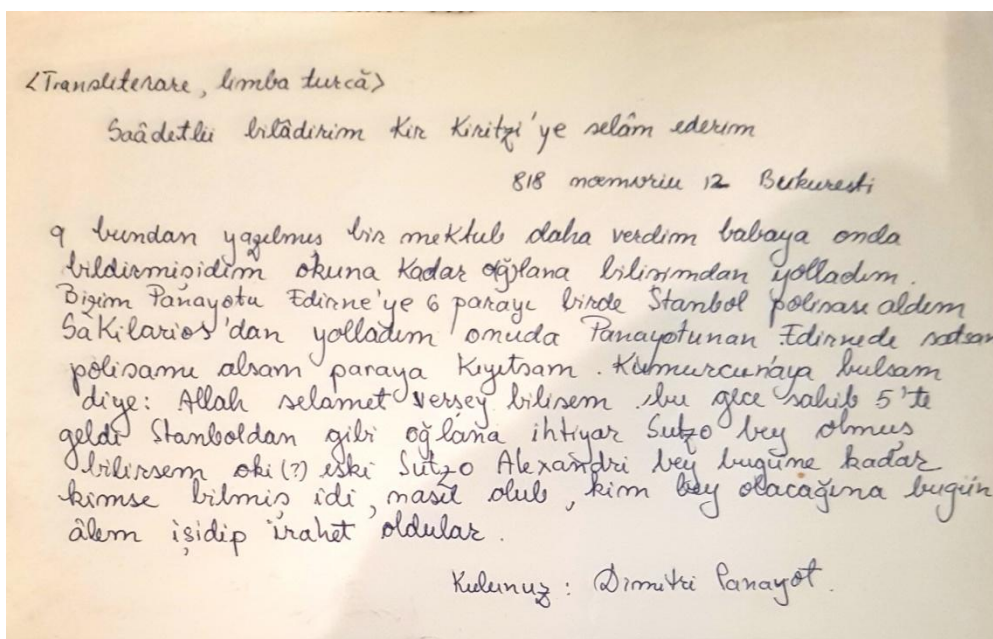 <Transliterare, limba turcă>
Saâdetlü bilâdirim Kir Kiritzi'ye selâm ederim
818 noemvriu 12 Bukuresti
9 bundan yazılmış bir mektub daha verdim babaya onda
bildirmişidim okuna kadar oğlana bilisimdan yolladım.
Bizim Panayotu Edirne'ye 6 parayı birde Stanbol polisası aldım
Sakilarios'dan yolladım onuda Panayotunan Edirnede satsam
polisamı alsam paraya Kıyıtsam. Kumurcunaya bulsam
diye: Allah selamet versey bilisem bu gece sahib 5'te
geldi Stanboldan gibi oğlana ihtiyar Sutzo bey olmuş
bilirsem oki (?) eski Sutzo Alexandri bey bugüne kadar
kimse bilmiş idi, nasıl olub, kim bey olacağına bugün
âlem işidip irahet oldular.
Kulunuz: Dimitri Panayot.